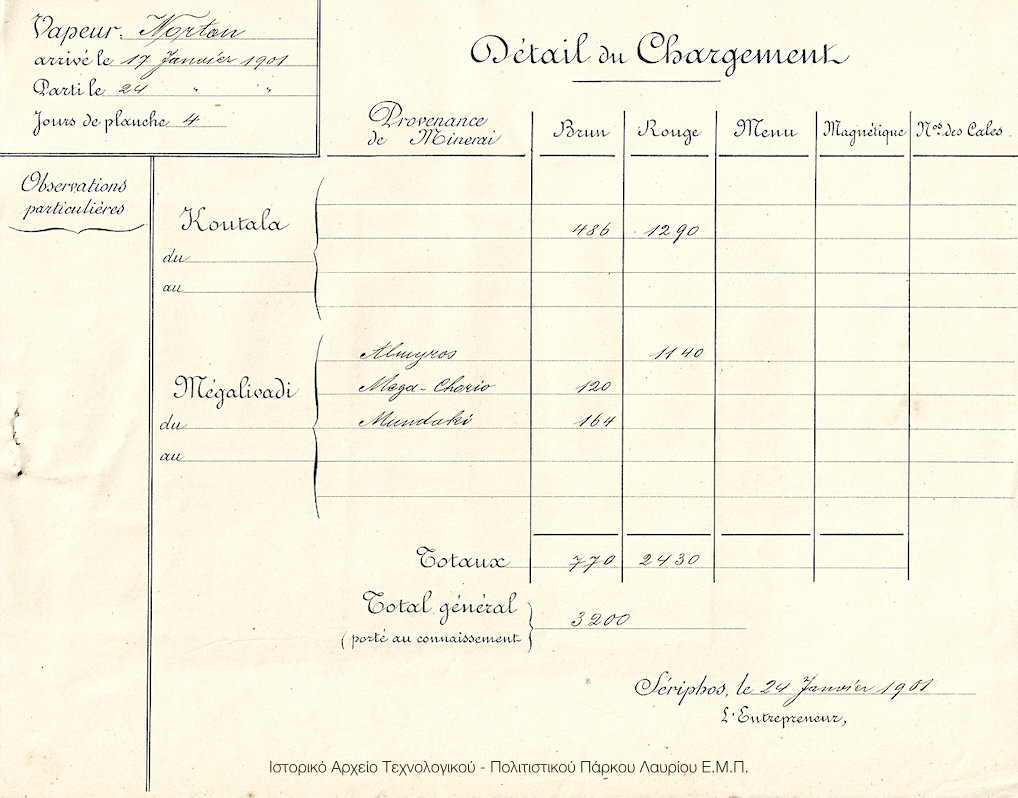 Vapeur: Norton
arrivé le 17 Janvier 1901
Parti le 24 " "
Jours de planche 4
Détail du Chargement
Provenance de Minerai Brun Rouge Menu Magnétique Nos. des Cales
Observations
particulières
Koutala
486 1290
du
au
Almyros 1140
Mégalivadi
Mega-Chorio 120
du
Mundaki 164
au
Totaux 770 2430
Total général 3200
(porté au connaissement
Sériphos, le 24 Janvier 1901
L'Entrepreneur,
Ιστορικό Αρχείο Τεχνολογικού - Πολιτιστικού Πάρκου Λαυρίου Ε.Μ.Π.